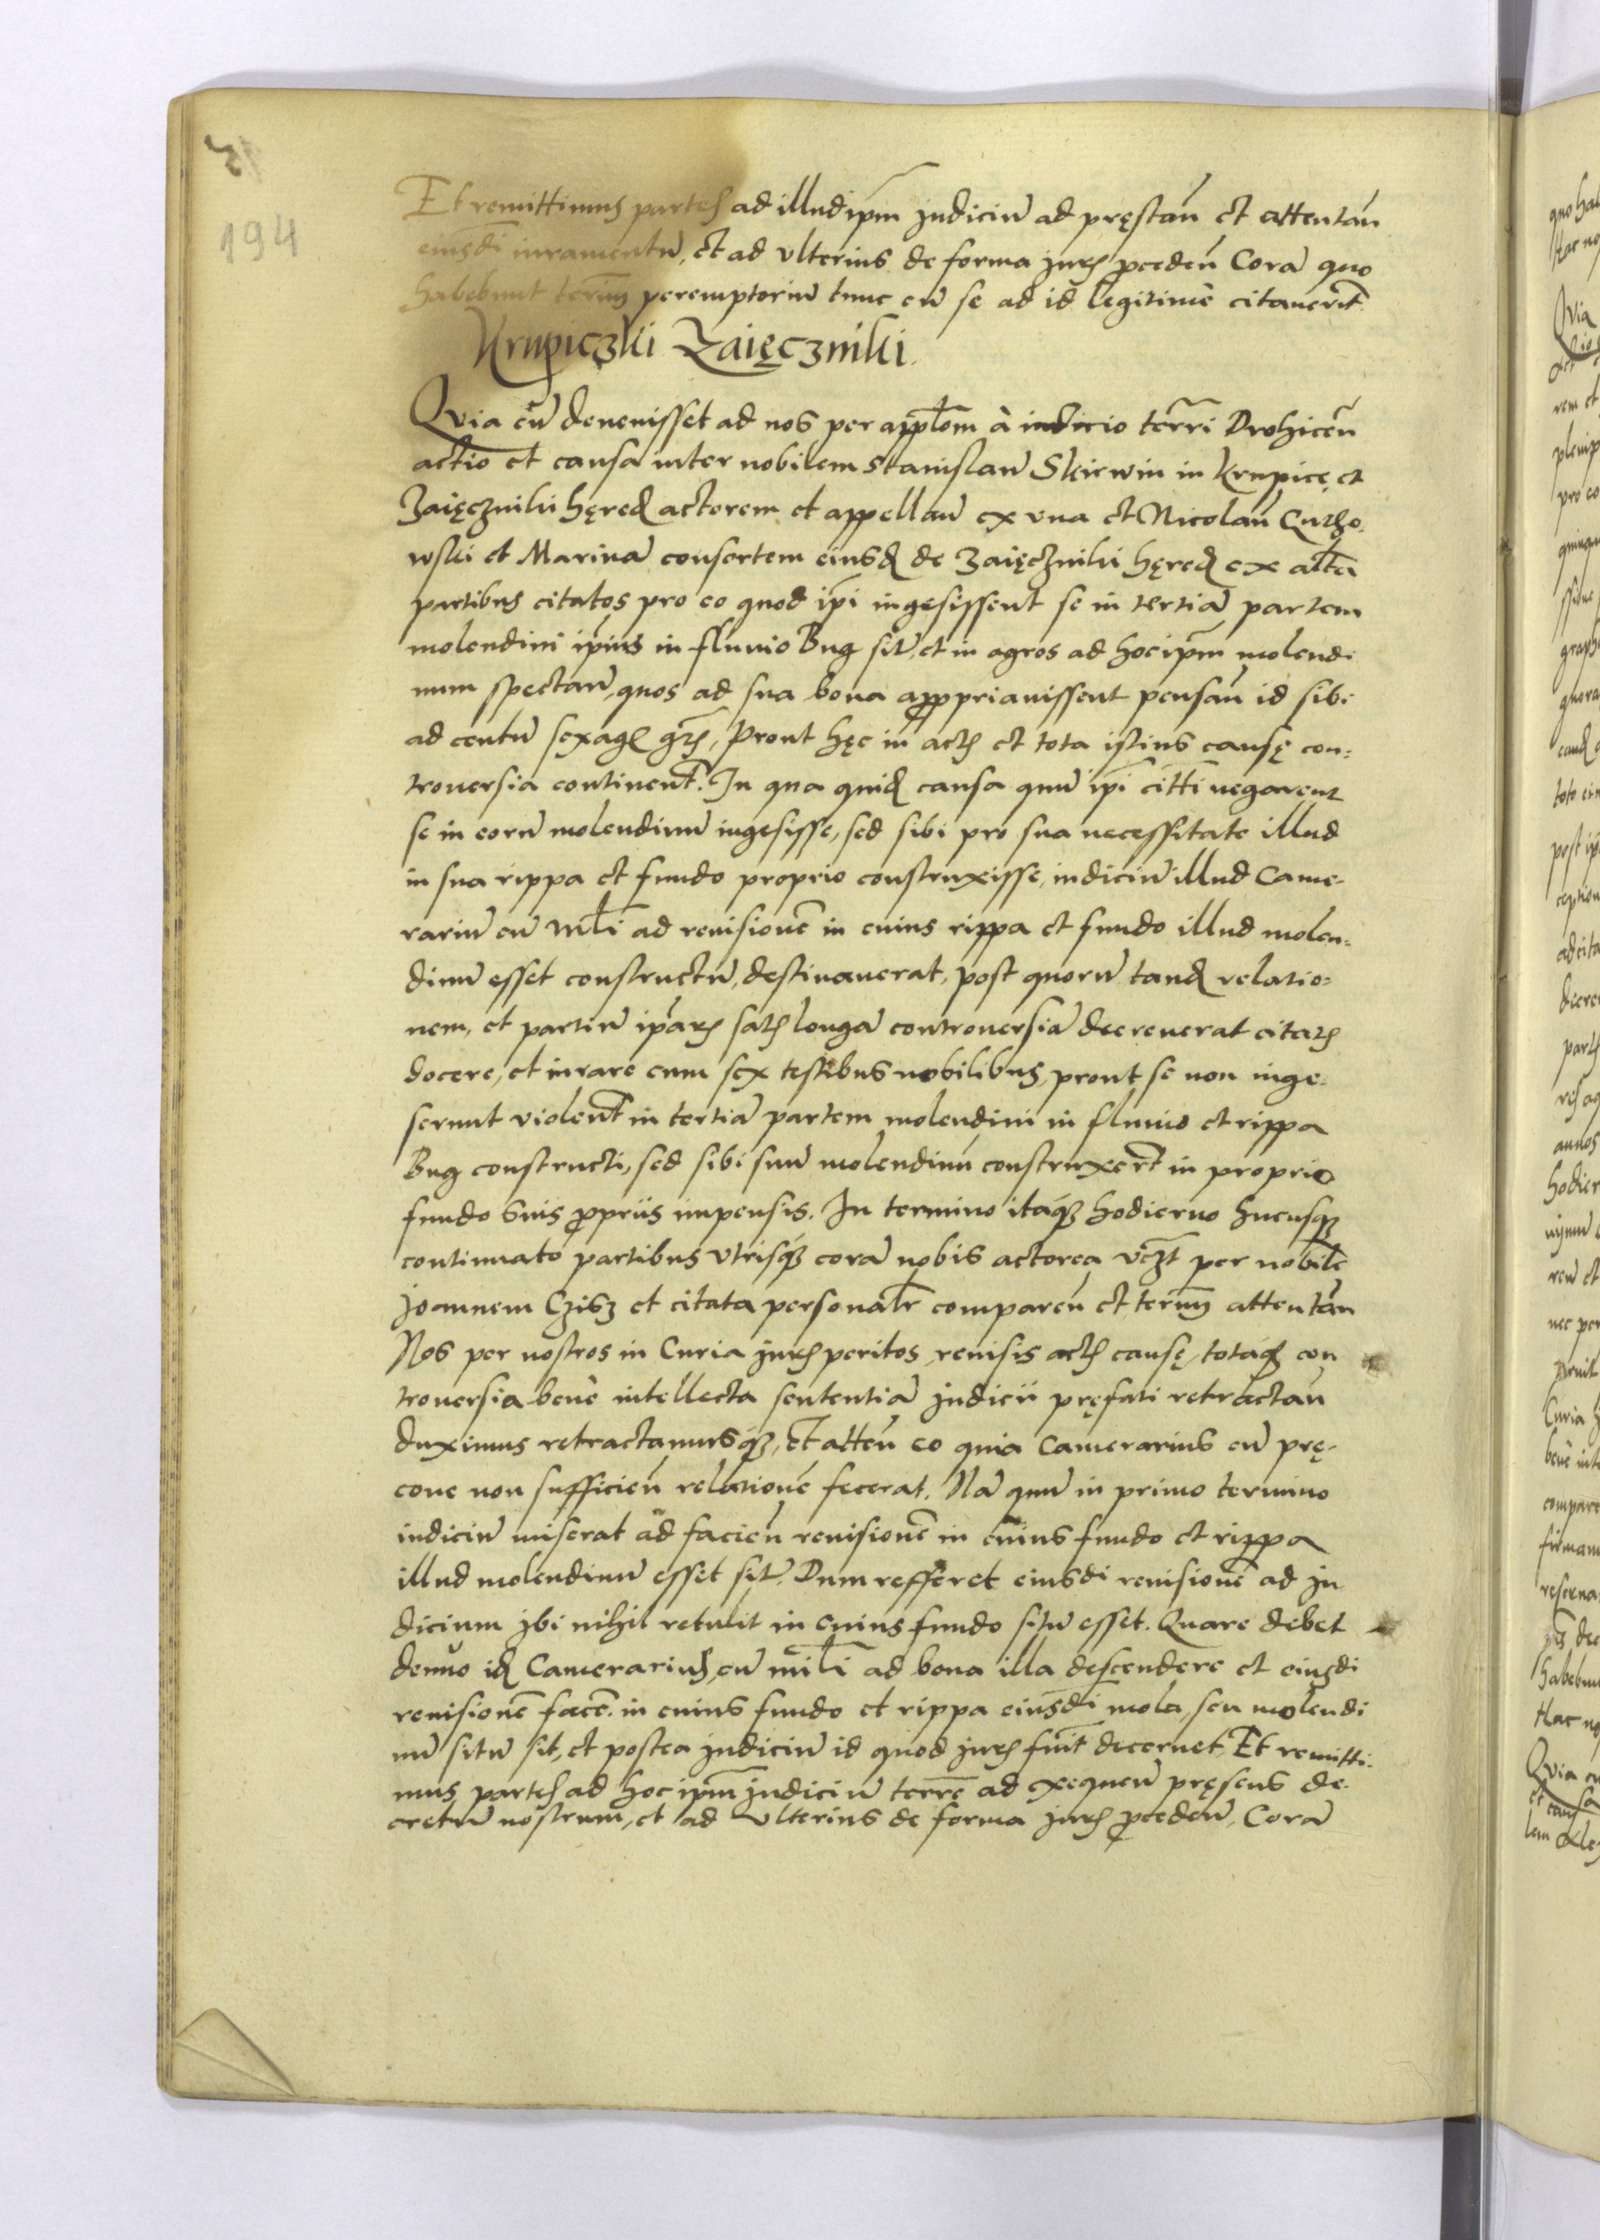 194
Et remittimus partes ad illud ipm judiciū ad pręstan̄ et attentan̄
eiusdī iuramentū, et ad vlterius de forma juris procedeñ Corā quo
habebunt termin peremptoriū tunc cū se ad id legitime citauerit
Krupiczki Zaięczniki
Qvia cū deuenisset ad nos per applōm à iudicio terri Drohiceñ
actio et causa inter nobilem Stanislaū Skirwin in Krupice et
Zaięczniki hęred actorem et appellan̄ ex vna et Nicolaū
wski et Marinā consortem eiusd de Zaięczniki hęred ex altā
partibus citatos pro eo quod ipi ingesissent se in tertiā partem
molendini ipius in fluuio Bug sitī, et in agros ad hoc ipm molendi
num spectan̄, quos ad sua bona appropriauissent pensan̄ id sibi
ad centū sexag grs, Prout hęc in actis et tota istius causę con:
trouersia continent. In qua quid causa quū ipi citti negarent
se in eorū molendinū ingesisse, sed sibi pro sua necessitate illud
in sua rippa et fundo proprio construxisse, iudiciū illud Came-
rariū cū mli ad reuisionē in cuius rippa et fundo illud molen=
dinū esset constructū, destinauerat, post quorū tand relatio=
nem, et partiū ipars satis longā controuersiā decreuerat citatis
docere, et iurare cum sex testibus nobilibus, prout se non inge-
serunt violent in tertiā partem molendini in fluuio et rippa
Bug constructi, sed sibi suū molendinū construxert in proprio
fundo suis propriis impensis. In termino itaq hodierno hucusq
continuato partibus vtrisq corā nobis actorea vczt per nobilē
Joannem Czisz et citata personalr compareñ et termin attentan̄
Nos per nostros in Curia juris peritos, reuisis actis causę, totaq con
trouersia bene intellecta sententiā judicii pręfati retractan̄
duximus retractamusq, et atteñ eo quia Camerarius cū prę-
cone non sufficieñ relationē fecerat. Nā quū in primo termino
iudiciū miserat ad facieñ reuisionē in cuius fundo et rippa
illud molendinū esset sitū. Dum refferet eiusdi reuisionē ad ju
dicium jbi nihil retulit in cuius fundo sitū esset. Quare debet
denuo id Camerarius, cū mili ad bona illa descendere et eiusdi
reuisionē facē. in cuius fundo et rippa eiusdi mola, seu molendi
nū sitū sit, et postea judiciū id quod juris fuit decernet Et remitti-
mus partes ad hoc ipm judiciū terre ad xequeñ pręsens de-
cretū nostrum, et ad vlterius de forma juris procedeñ, Corā